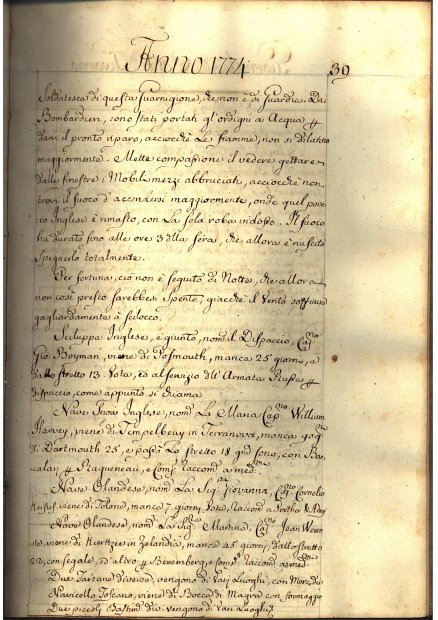 Anno 1774
39
Soldatesca di questa Guarnigione, che non è di Guardia. Dai
Bombardieri, sono stati portati gl'ordigni a Acqua
dare il pronto riparo, acciocchè Le fiamme, non si dilatino
maggiormente. Mette compassione il vedere gettare
dalle finestre i Mobili mezzi abbruciati, acciocchè non
trovi il fuoco d'accendersi maggiormente, onde quel pove
ro Inglese è rimasto, con La sola roba indosso. Il fuoco
ha durato fino alle ore 3 della sera, che allora è riuscito
spegnerlo totalmente.
Per fortuna, ciò non è seguito di Notte, che allora
non così presto sarebbesi spento, giacchè il Vento soffiava
gagliardamente a scilocco.
Sciluppa Inglese, è giunto, nom. il Dispaccio, Cap.no
Gio: Boyman, viene di Posmouth, manca 25 giorni, e
dallo stretto 13. Vota, ed al servizio dell'Armata Russa
dispaccio, come appunto si chiama
Nave Snow Inglese, nom. La Maria Cap.no William
Harvey, viene di Tempelbeuy in Terranova, manca
di Dartmouth 25, e passò Lo stretto 18 gni sono, con Bac
calari Ragueneau, e Comp.
Nave Olandese, nom. La Sig.ra Giovanna, Cap.no Cornelio
viene di Tolone, manca 7 giorni, Vota,
Nave Olandese, nom. La Sig. Martina, Cap.no Jean
viene di in Zelandia, manca 45 giorni, dallo stretto
22, con segale, ed altro
Due Tartane diverse, vengono di Varj Luoghi, con
Navicello Toscano, viene di Bocca di Magra con formaggio
Due piccoli vengono di Vari Luoghi